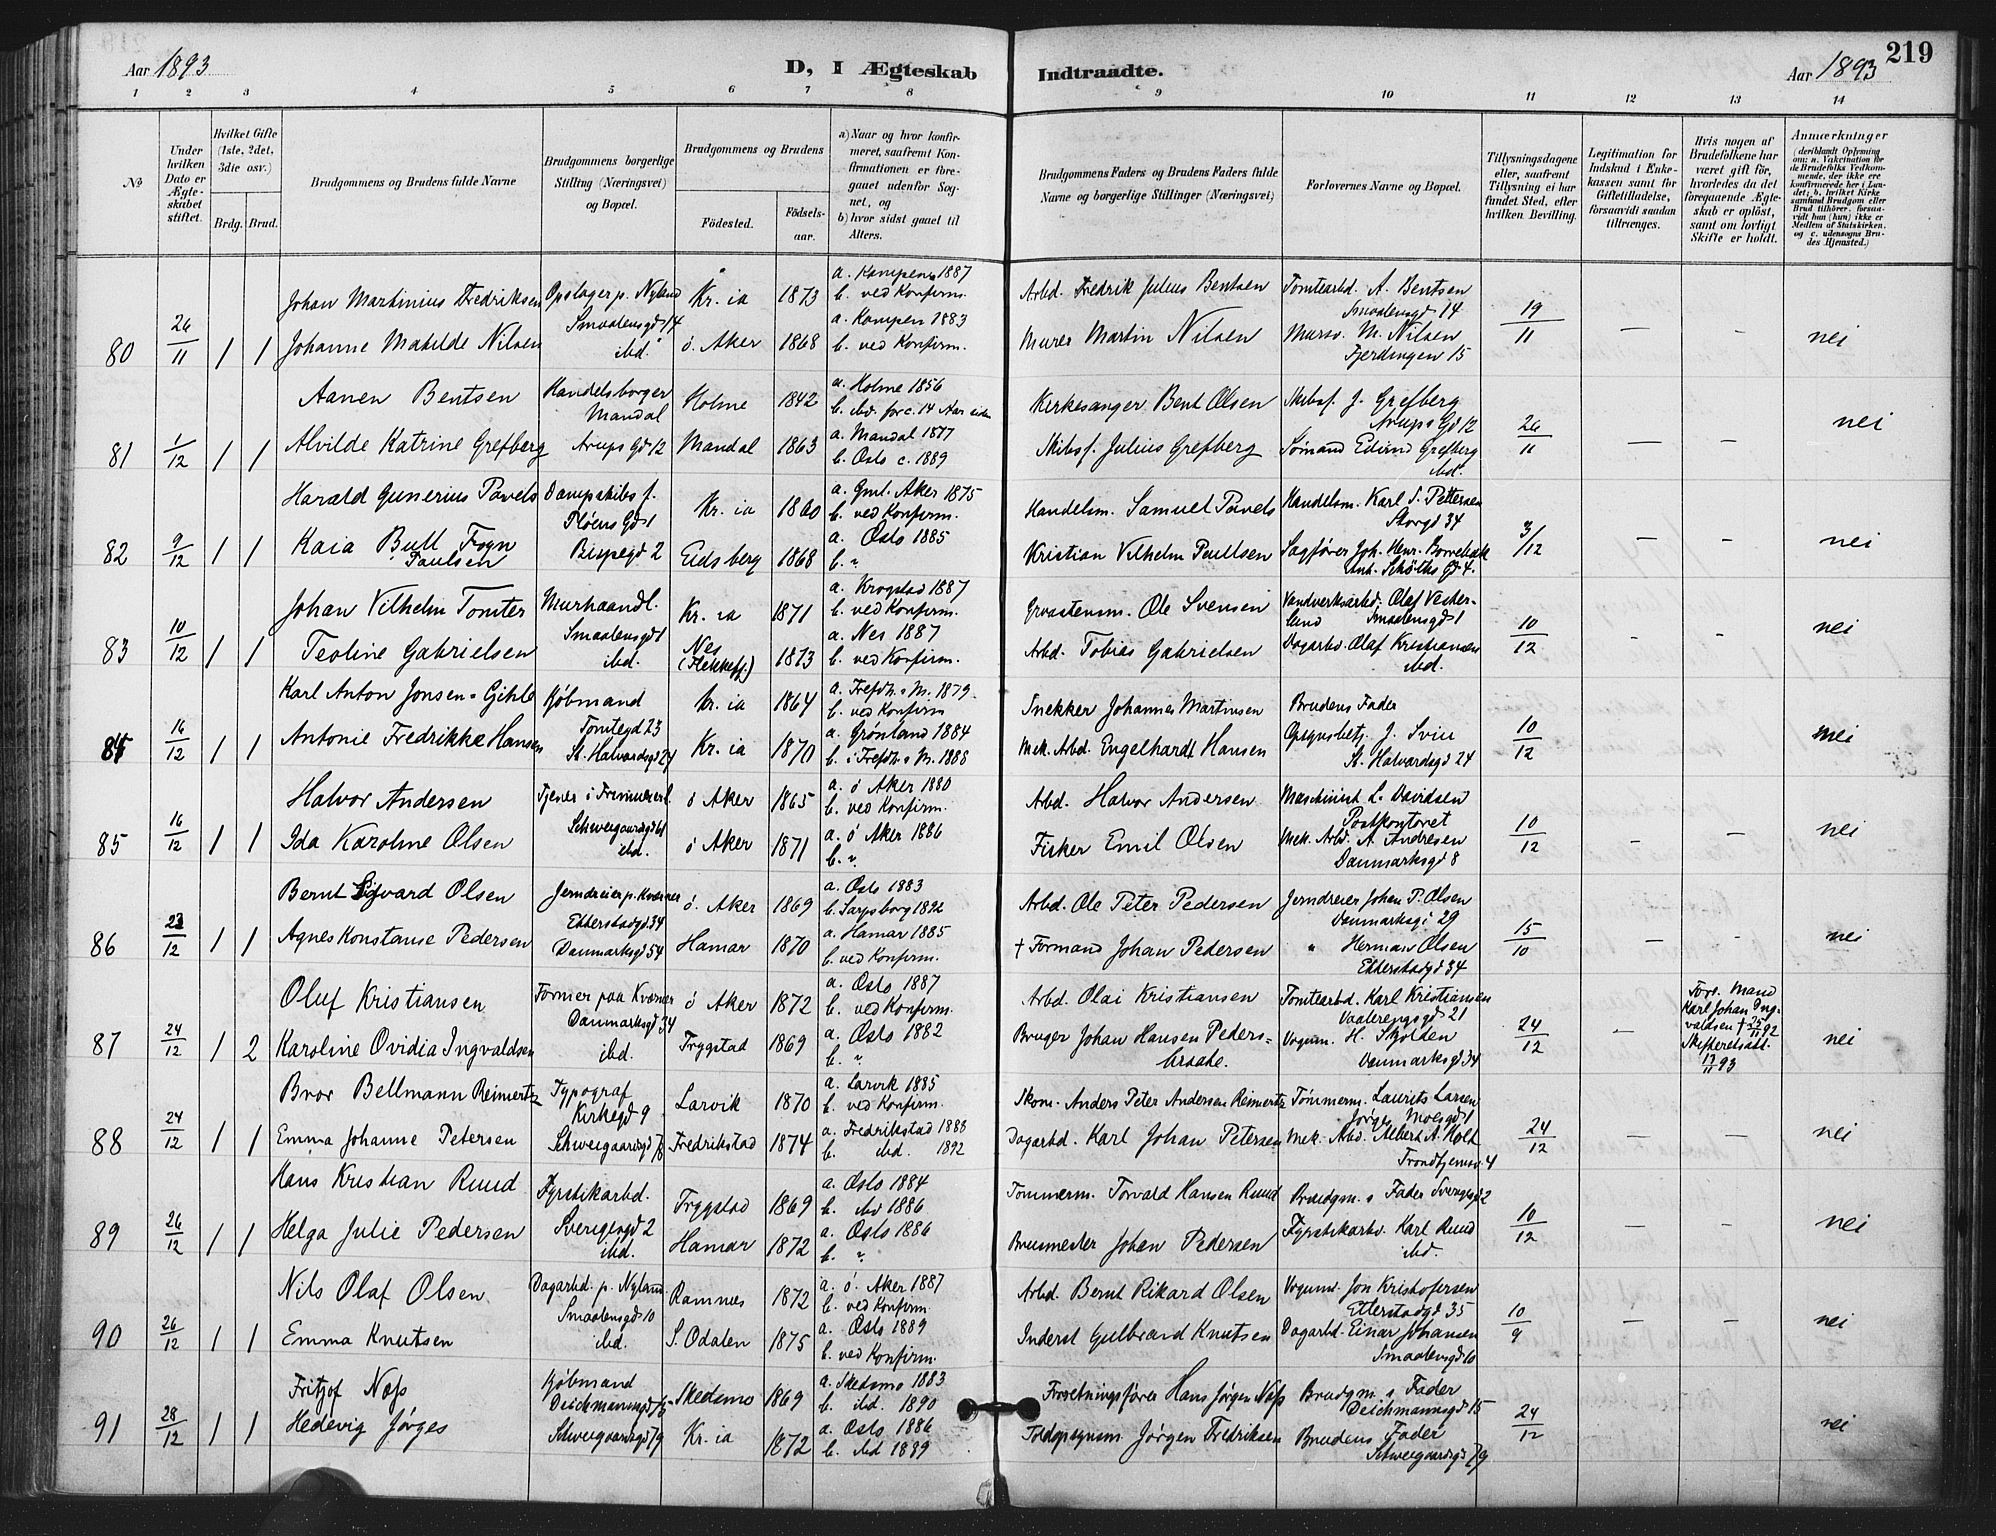 219
Aar 1893
D, I Ægteskab Indtraadte.
Aar 1893
1 2 3 4 5 6 7 8 9 10 11 12 13 14
No
Under hvilken Dato er Ægteskabet stiftet.
Hvilket Gifte (1ste, 2det, 3die osv.)
Brdg. Brud.
Brudgommens og Brudens fulde Navne
Brudgommens borgerlige Stilling (Næringsvei) og Bopæl.
Brudgommens og Brudens
Fødested. Fødselsaar.
a) Naar og hvor konfirmeret, saafremt Konfirmationen er foregaaet udenfor Sognet, og
b) hvor sidst gaaet til Alters.
Brudgommens Faders og Brudens Faders fulde Navne og borgerlige Stillinger (Næringsvei)
Forlovernes Navne og Bopæl.
Tillysningsdagene eller, saafremt Tillysning ei har fundet Sted, efter hvilken Bevilling.
Legitimation for Indskud i Enkekassen samt for Giftetilladelse, forsaavidt saadan tiltrænges.
Hvis nogen af Brudefolkene har været gift før, hvorledes da det foregaaende Ægteskab er opløst, samt om lovligt Skifte er holdt.
Anmærkninger
(deriblandt Oplysning om: a. Vakcination for de Brudefolks Vedkommende, der ikke ere konfirmerede her i Landet; b. hvilket Kirkesamfund Brudgom eller Brud tilhører, forsaavidt han (hun) ikke er Medlem af Statskirken, og c. udensogns Brudes Hjemsted.)
Johan Martinius Fredriksen Opslager p. Nyland Kr.ia 1873 a. Kampen 1887
b. ved Konfirm.
Arbd. Fredrik Julius Bentsen Tomtearbd. A. Bentsen
Smaalensgd 14
80 26/11 1 1 Johanne Matilde Nilsen Smaalensgd 14 ibd. ö. Aker 1868 a. Kampen 1883
b. ved Konfirm.
Murer Martin Nilsen Mursv. M. Nilsen
Fjerdingen 15 19/11 — — nei
Aanen Bentsen Handelsborger Mandal Holme 1842 a. Holme 1856
b. ibd. for c. 14 Aar siden
Kirkesanger Bent Olsen Skibsf. J. Grefberg
Arups Gd 12
81 1/12 1 1 Alvilde Katrine Grefberg Arups Gd 12 Mandal 1863 a. Mandal 1877
b. Oslo c. 1889
Skibsf. Julius Grefberg Sømand Edvind Grefberg
ibd. 26/11 — — nei
Harald Gunerius Pavels Dampskibsf. Fløens Gd 1 Kr.ia 1860 a. Gml. Aker 1875
b. ved Konfirm.
Handelsm. Samuel Pavels Handelsm. Karl S. Pettersen
Storgd 34
82 9/12 1 1 Kaia Bull Fogn Paulsen Bispegd 2 Eidsberg 1868 a. Oslo 1885
b. "
Kristian Vilhelm Paulsen Sagfører Joh. Henr. Borrebæk
Ant. Schøths Gd 4. 3/12 — — nei
Johan Vilhelm Tomter Murhaandl. Kr.ia 1871 a. Krogstad 1887
b. ved Konfirm.
Ole Svensen Vandverksarbd. Olaf Vesterlund
Smaalensgd 1
83 10/12 1 1 Teoline Gabrielsen Smaalensgd 1 ibd. Nes (Flekkefj.) 1873 a. Nes 1887
b. ved Konfirm.
Arbd. Tobias Gabrielsen Dagarbd. Olaf Kristiansen
ibd. 10/12 — — nei
Karl Anton Jonsen-Gihle Kjøbmand Tomtegd 23 Kr.ia 1864 a. Trefdh.s M. 1879.
b. ved Konfirm
Snekker Johannes Martinsen Brudens Fader
84 16/12 1 1 Antonie Fredrikke Hansen St. Halvardsgd 24 Kr.ia 1870 a. Grønland 1884
b. i Trefdh.s M. 1888
Mek. Arbd. Engelhardt Hansen Opsynsbetj. J. Svin
St. Halvardsgd 24 10/12 nei
Halvor Andersen Tjener i Frimurerl. ö Aker 1865 a. ö Aker 1880
b. ved Konfirm.
Arbd. Halvor Andersen Maschinist L. Davidsen
Postkontoret
85 16/12 1 1 Ida Karoline Olsen Schweigaardsgd 61 ibd. ö Aker 1871 a. ö Aker 1886
b. "
Fisker Emil Olsen Mek. Arbd. A. Andresen
Danmarksgd 8 10/12 — — nei
Bernt Sigvard Olsen Jerndreier p. Kværner Etterstadgd 34 ö. Aker 1869 a. Oslo 1883
b. Sarpsborg 1892
Arbd. Ole Peter Pedersen Jerndreier Johan P. Olsen
Danmarksg. 29
86 23/12 1 1 Agnes Konstanse Pedersen Danmarksgd 54 Hamar 1870 a. Hamar 1885
b. ved Konfirm.
† Formand Johan Pedersen " Herman Olsen
Etterstadgd 34 15/10 — — nei
Oluf Kristiansen Former paa Kværner Danmarksgd 34 ö Aker 1872 a. Oslo 1887
b. ved Konfirm.
Arbd. Olai Kristiansen Tomtearbd. Karl Kristiansen
Vaalerengsgd 21
87 24/12 1 2 Karoline Ovidia Ingvaldsen ibd. Trygstad 1869 a. Oslo 1882
b. "
Bruger Johan Hansen Pedersbraate. Vognm. H. Skjolden
Danmarksgd 34 24/12 — Forr. Mand Karl Johan Ingvaldsen † 25/11 92 Skifteretsatt. 13/11 93 nei
Bror Bellmann Reimertz Typograf Kirkegd 9 Larvik 1870 a. Larvik 1885
b. ved Konfirm.
Skom. Anders Peter Andersen Reimertz Tømmerm. Laurits Larsen
Jørges Moesgd 1
88 24/12 1 1 Emma Johanne Petersen Schweigaardsgd 78 Fredrikstad 1874 a. Fredrikstad 1883
b. ibd. 1892
Dagarbd. Karl Johan Petersen Mek. Arbd. Albert A. Holt
Trondhjemsv. 4 24/12 — — nei
Hans Kristian Ruud Fyrstikarbd. Trygstad 1869 a. Oslo 1884
b. ibd 1886
Tømmerm. Torvald Hansen Ruud Brudgm.s Fader Sverigesgd 2
89 26/12 1 1 Helga Julie Pedersen Sverigesgd 2 ibd. Hamar 1872 a. Oslo 1886
b. "
Brusmester Johan Pedersen Fyrstikarbd. Karl Ruud
ibd. 10/12 — — nei
Nils Olaf Olsen Dagarbd. p. Nyland Ramnes 1872 a. ö. Aker 1887
b. ved Konfirm.
Arbd. Bernt Rikard Olsen Vognm. Jon Kristofersen
Etterstadgd 35
90 26/12 1 1 Emma Knutsen Smaalensgd 10 ibd. S. Odalen 1875 a. Oslo 1889
b. ved Konfirm.
Inderst Gulbrand Knutsen Dagarbd. Einar Johansen
Smaalensgd 10 10/9 — — nei
Fritjof Næss Kjøbmand Deichmannsgd 15 Skedsmo 1869 a. Skedsmo 1883
b. ibd. 1890
Forretningsfører Hans Jørgen Næss Brudgm.s Fader
Deichmannsgd 15
91 28/12 1 1 Hedevig Jørges Schweigaardsgd 79 Kr.ia 1872 a. Oslo 1886
b. ibd 1889
Toldopsynsm. Jørgen Fredriksen Brudens Fader
Schweigaardsgd 79 24/12 nei